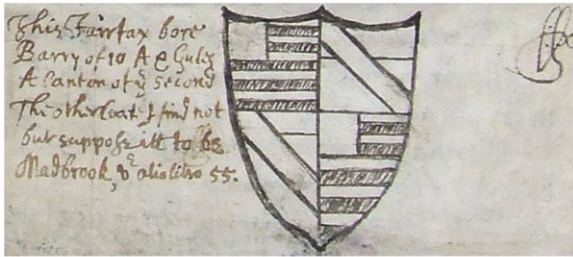 This Fairfax bore
Barry of 10 A & Gules
A Canton of yͤ second
The other Coat I find not
but suppose itt to be
Madbrook, vͤ alio libro 55.